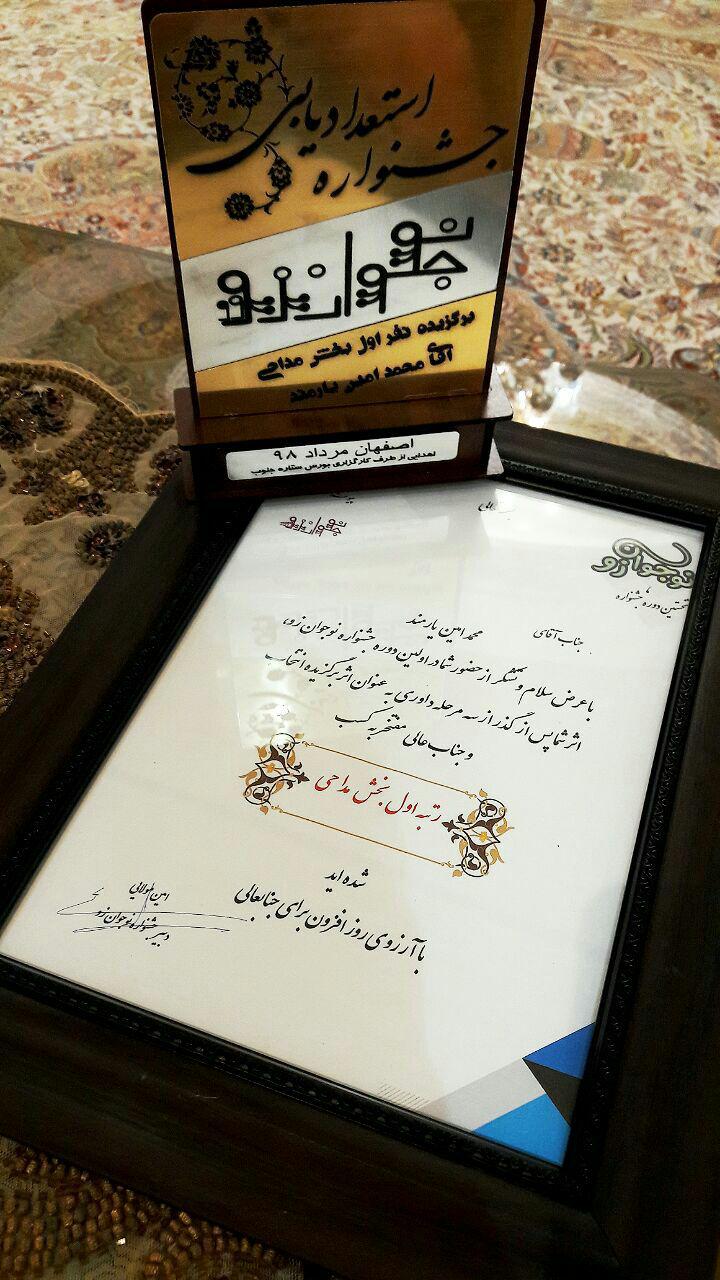 استعدادیابی
جشنواره
نوجوان زو
برگزیده نفر اول بخش مداحی
آقای محمد امین یارمند
اصفهان مرداد ۹۸
اهدایی از طرف کارگزاری بورس ستاره جنوب
نوجوان زو
نوجوان زو
نخستین دوره جشنواره
جناب آقای محمد امین یارمند
با عرض سلام و تشکر از حضور شما در اولین دوره جشنواره نوجوان زو،
اثر شما پس از گذر از سه مرحله داوری به عنوان اثر برگزیده انتخاب
و جناب عالی مفتخر به کسب
رتبه اول بخش مداحی
شده اید
با آرزوی روز افزون برای جنابعالی
امین طولابی
دبیر جشنواره نوجوان زو